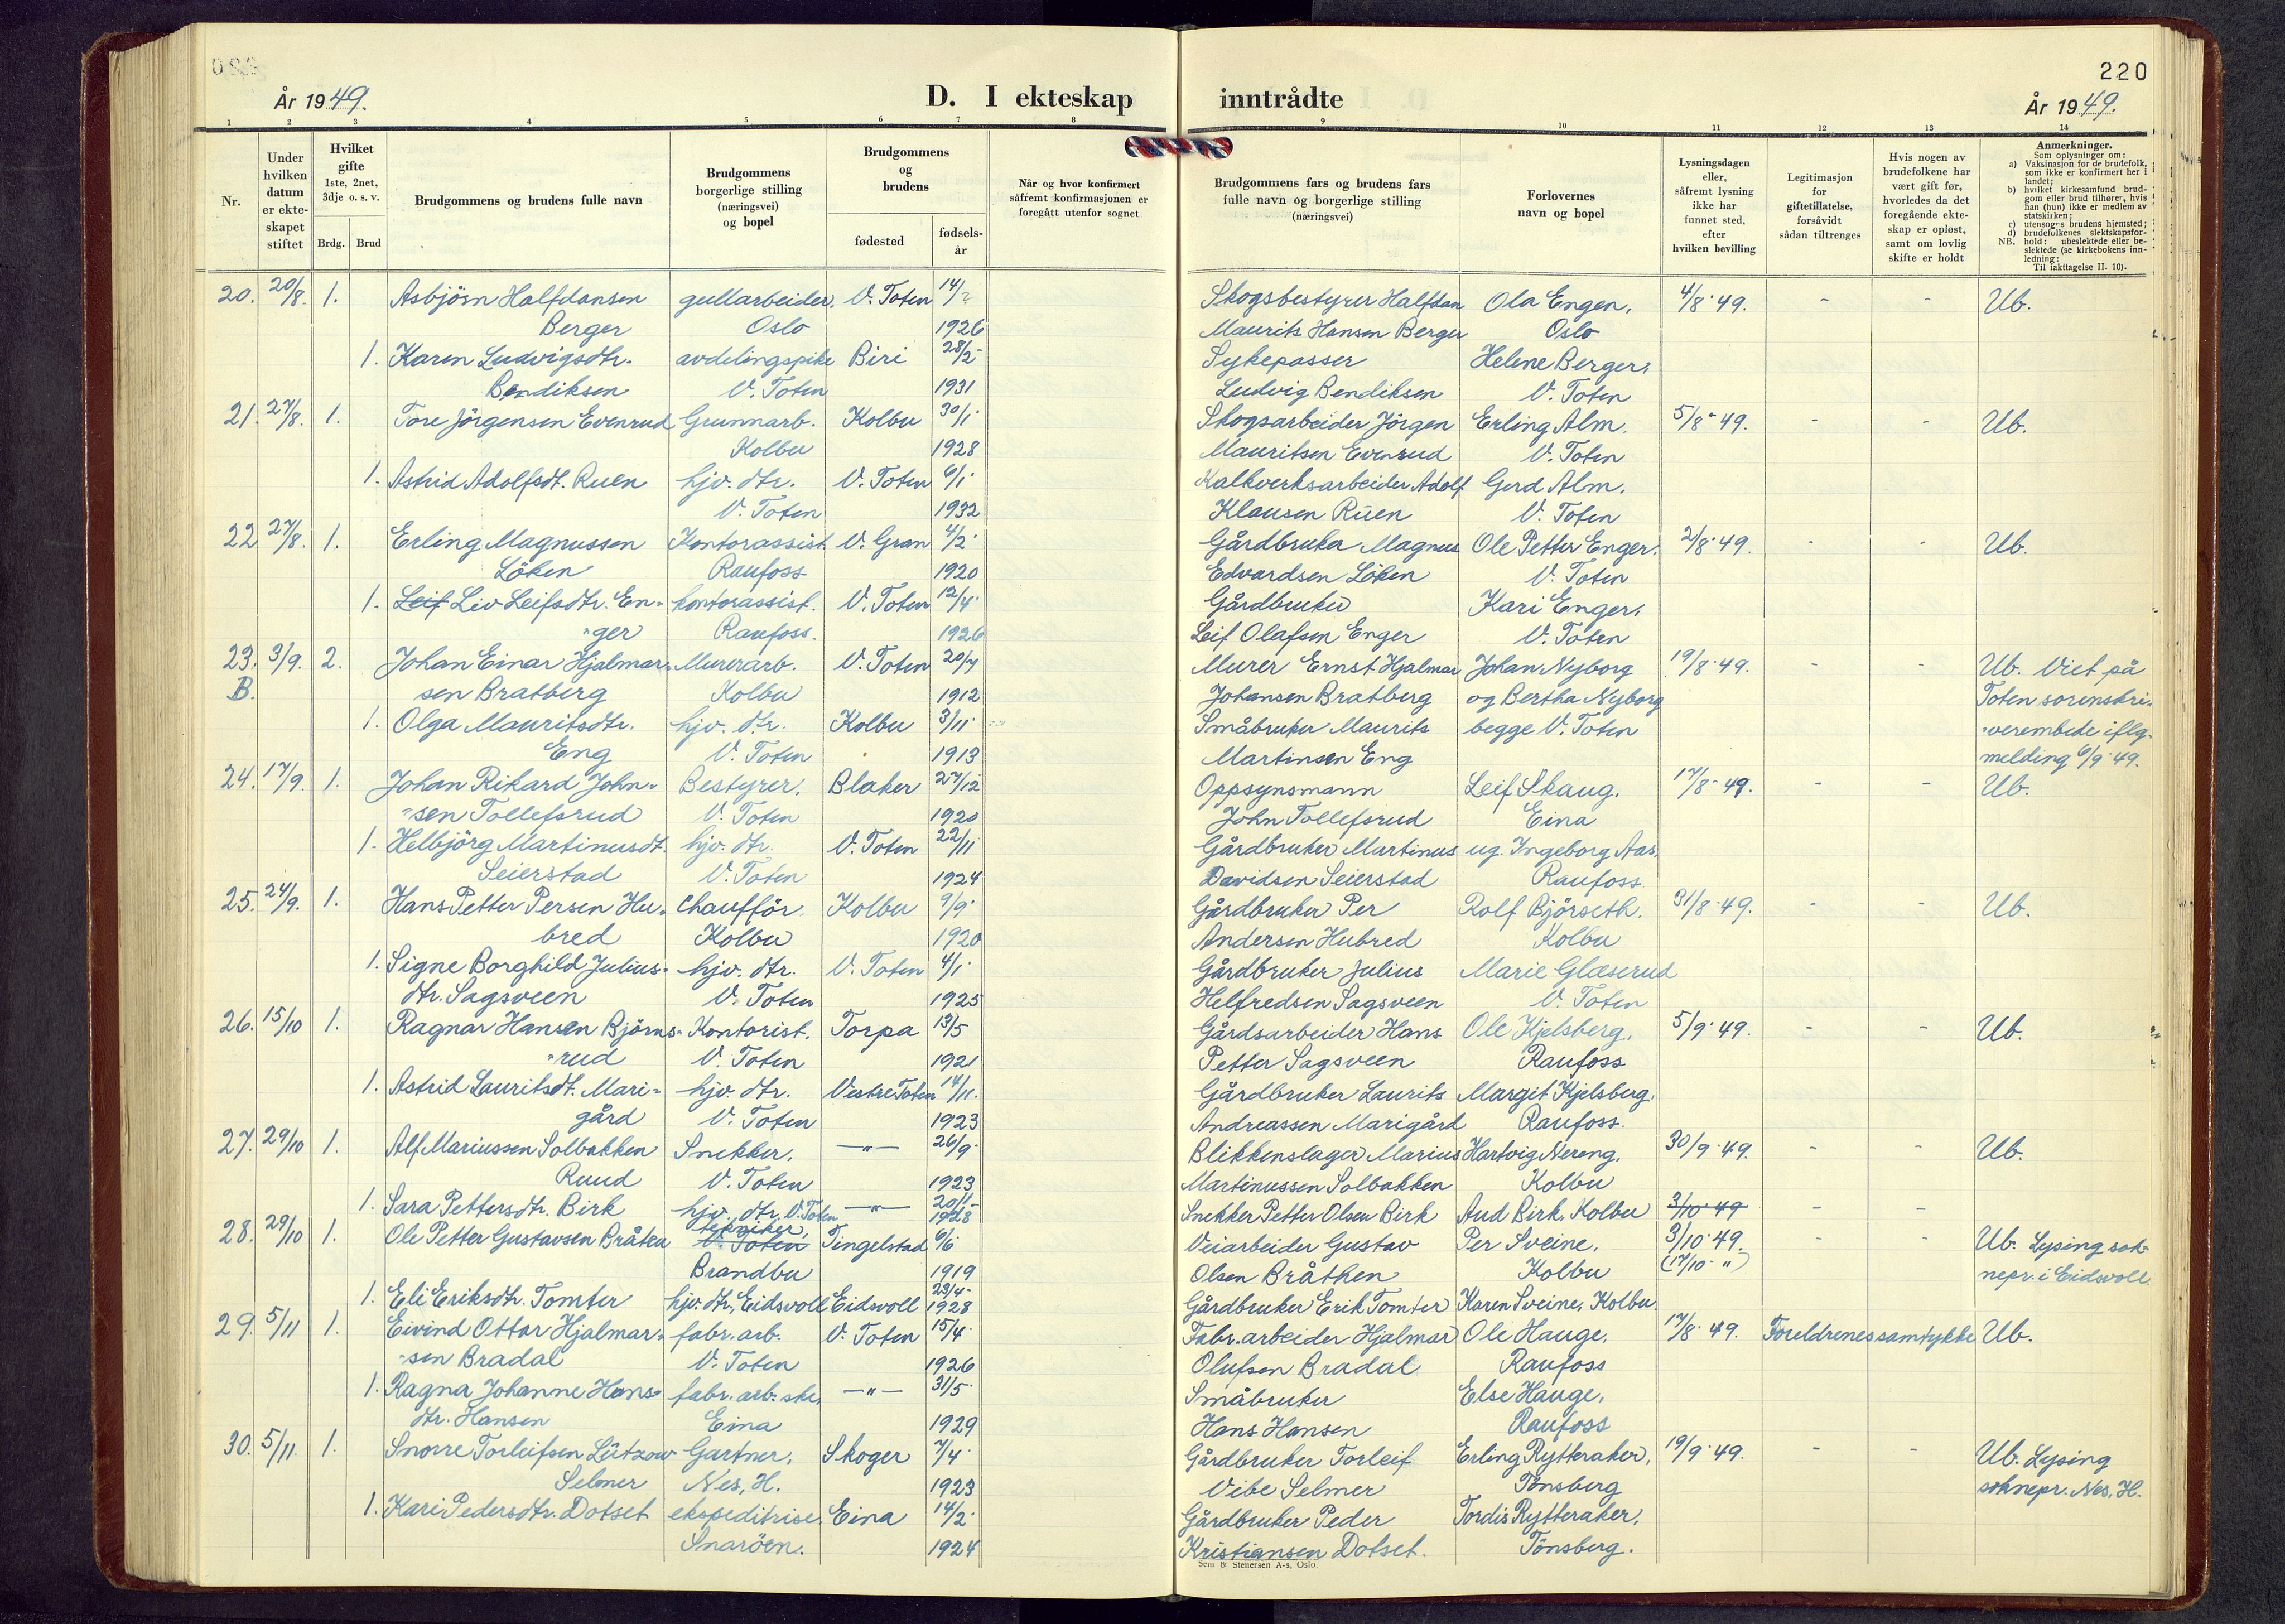 År 1949.
D. I ekteskap
1 2 3 4 5 6 7 8
Nr.
Under hvilken datum er ekteskapet stiftet
Hvilket gifte 1ste, 2net, 3dje o. s. v.
Brdg. Brud
Brudgommens og brudens fulle navn
Brudgommens borgerlige stilling (næringsvei) og bopel
Brudgommens og brudens
fødested
fødselsår
Når og hvor konfirmert såfremt konfirmasjonen er foregått utenfor sognet
20. 20/8. 1. Asbjörn Halfdansen gullarbeider. V. Toten 14/2
Berger Oslo 1926
1. Karen Ludvigsdtr. avdelingspike Biri 28/2
Bendiksen V. Toten 1931
21. 27/8. 1. Tore Jörgensen Evenrud Grunnarb. Kolbu 30/1
Kolbu 1928
1. Astrid Adolfsdt. Ruen hjv. dtr. V. Toten 6/1
V. Toten 1932
22. 27/8. 1. Erling Magnussen Kontorassist. V. Gran 4/2
Löken Raufoss 1920
1. Leif Liv Leifsdtr. En- kontorassist. V. Toten 12/4
-ger Raufoss. 1926
23. 3/9. 2. Johan Einar Hjalmar- Murerarb. V. Toten 20/7
B. sen Bratberg Kolbu 1912
1. Olga Mauritsdtr. hjv. dtr. Kolbu 3/11
Eng V. Toten 1913
24. 17/9. 1. Johan Rikard John- Bestyrer. Blaker 27/12
-sen Tollefsrud V. Toten 1920
1. Helbjörg Martinusdt. hjv. dtr. V. Toten 22/11
Seierstad V. Toten 1924
25. 24/9. 1. Hans Petter Persen Hu- Chaufför Kolbu 9/9
bred Kolbu 1920
1. Signe Borghild Julius- hjv. dtr. V. Toten 4/1
dtr. Sagsveen V. Toten 1925
26. 15/10 1. Ragnar Hansen Björns- Kontorist. Torpa 13/5
-rud V. Toten 1921
1. Astrid Lauritsdt. Mari- hjv. dtr. Vestre Toten 14/11.
gård V. Toten 1923
27. 29/10 1. Alf Mariussen Solbakken Snekker. —"— 26/9
Ruud V. Toten 1923
1. Sara Pettersdtr. Birk hjv. dtr. V. Toten —"— 20/1 1928
28. 29/10 1. Ole Petter Gustavsen Bråten tekniker, V. Toten Tingelstad 6/6
Brandbu 1919
1. Eli Eriksdtr. Tomter hjv. dtr. Eidsvoll Eidsvoll 23/4 1928
29. 5/11 1. Eivind Ottar Hjalmar- fabr. arb. V. Toten 15/4
-sen Bradal V. Toten 1926
1. Ragna Johanne Hans- fabr. arb. ske. —"— 31/5
dtr. Hansen Eina 1929
30. 5/11. 1. Snorre Torleifsen Lützow Gartner. Skoger 7/4
Selmer Nes, H. 1923
1. Kari Pedersdtr. Dotset ekspeditrise. Eina 14/2
Snaröen. 1924
220
inntrådte
År 1949.
9 10 11 12 13 14
Brudgommens fars og brudens fars fulle navn og borgerlige stilling (næringsvei)
Forlovernes navn og bopel
Lysningsdagen eller, såfremt lysning ikke har funnet sted, efter hvilken bevilling
Legitimasjon for giftetillatelse, forsåvidt sådan tiltrenges
Hvis nogen av brudefolkene har vært gift før, hvorledes da det foregående ekteskap er opløst, samt om lovlig skifte er holdt
Anmerkninger.
Som oplysninger om:
a) Vaksinasjon for de brudefolk, som ikke er konfirmert her i landet;
b) hvilket kirkesamfund brudgom eller brud tilhører, hvis han (hun) ikke er medlem av statskirken;
c) utensogns brudens hjemsted;
d) brudefolkenes slektskapsforhold: ubeslektede eller beslektede (se kirkebokens innledning:
NB. Til iakttagelse II. 10).
Skogsbestyrer Halfdan Ola Engen, 4/8-49. - - Ub.
Maurits Hansen Berger Oslo
Sykepasser Helene Berger,
Ludvig Bendiksen V. Toten
Skogsarbeider Jörgen Erling Alm. 5/8-49. - - Ub.
Mauritsen Evenrud V. Toten
Kalkverksarbeider Adolf Gerd Alm.
Klausen Ruen V. Toten
Gårdbruker Magnus Ole Petter Enger. 2/8-49. - - Ub.
Edvardsen Löken V. Toten
Gårdbruker Kari Enger,
Leif Olafsen Enger V. Toten
Murer Ernst Hjalmar Johan Nyborg 19/8-49. - - Ub. Viet på
Johansen Bratberg og Bertha Nyborg Toten sorenskri-
Småbruker Maurits begge V. Toten -verembede iflg.
Martinsen Eng melding 6/9-49.
Oppsynsmann Leif Skaug. 17/8-49. - - Ub.
John Tollefsrud Eina
Gårdbruker Martinus ug. Ingeborg Aas.
Davidsen Seierstad Raufoss
Gårdbruker Per Rolf Björseth. 31/8-49. - - Ub.
Andersen Hubred Kolbu
Gårdbruker Julius Marie Glæserud
Helfredsen Sagsveen V. Toten
Gårdsarbeider Hans Ole Kjelsberg. 5/9-49. - - Ub.
Petter Sagsveen Raufoss
Gårdbruker Laurits Margit Kjelsberg.
Andreassen Marigård Raufoss.
Blikkenslager Marius Hartvig Nereng. 30/9-49. - - Ub.
Martinussen Solbakken Kolbu
Snekker Petter Olsen Birk Aud Birk, Kolbu 3/10-49 - -
Veiarbeider Gustav Per Sveine. 3/10-49. - - Ub. Lysing sok-
Olsen Bråthen Kolbu (17/10-") nepr. i Eidsvoll
Gårdbruker Erik Tomter Karen Sveine, Kolbu
Fabr. arbeider Hjalmar Ole Hauge, 17/8-49. Foreldrenes samtykke Ub.
Olufsen Bradal Raufoss
Småbruker Else Hauge,
Hans Hansen Raufoss
Gårdbruker Torleif Erling Rytteraker, 19/9-49. - - Ub. Lysing
Vibe Selmer Tönsberg soknepr. Nes, H.
Gårdbruker Peder Tordis Rytteraker,
Kristiansen Dotset. Tönsberg.
Sem & Stenersen A-s, Oslo.